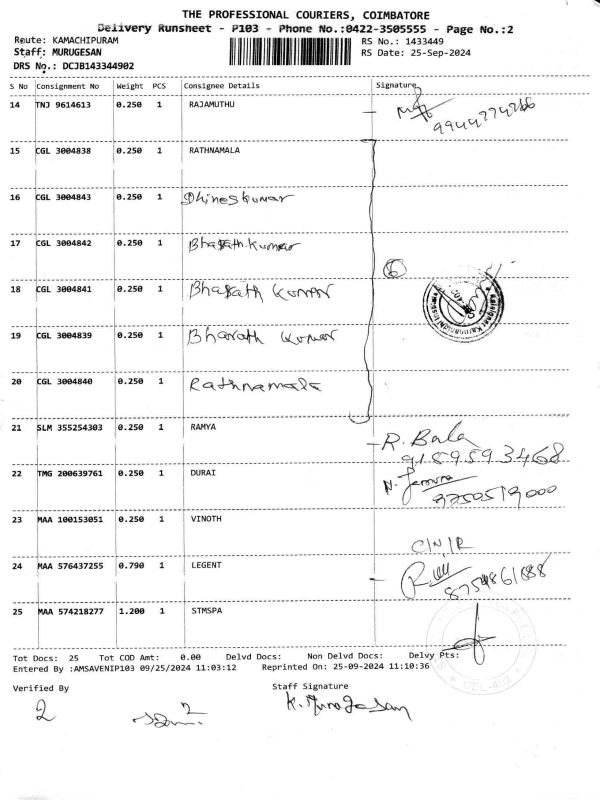 THE PROFESSIONAL COURIERS, COIMBATORE
Delivery Runsheet - P103 - Phone No.:0422-3505555 - Page No.:2
Route: KAMACHIPURAM RS No.: 1433449
Staff: MURUGESAN RS Date: 25-Sep-2024
DRS No.: DCJB143344902
S No Consignment No Weight PCS Consignee Details Signature
14 TNJ 9614613 0.250 1 RAJAMUTHU
15 CGL 3004838 0.250 1 RATHNAMALA
16 CGL 3004843 0.250 1 Dhineskumar
17 CGL 3004842 0.250 1 Bharath kumar
18 CGL 3004841 0.250 1 Bharath kumar
19 CGL 3004839 0.250 1 Bharath kumar
20 CGL 3004840 0.250 1 Rathnamala
6
21 SLM 355254303 0.250 1 RAMYA R. Bala
9159593468
22 TMG 200639761 0.250 1 DURAI
23 MAA 100153051 0.250 1 VINOTH
C/N/R
24 MAA 576437255 0.790 1 LEGENT
25 MAA 574218277 1.200 1 STMSPA
Tot Docs: 25 Tot COD Amt: 0.00 Delvd Docs: Non Delvd Docs: Delvy Pts:
Entered By :AMSAVENIP103 09/25/2024 11:03:12 Reprinted On: 25-09-2024 11:10:36
Verified By Staff Signature
K. Murugesan